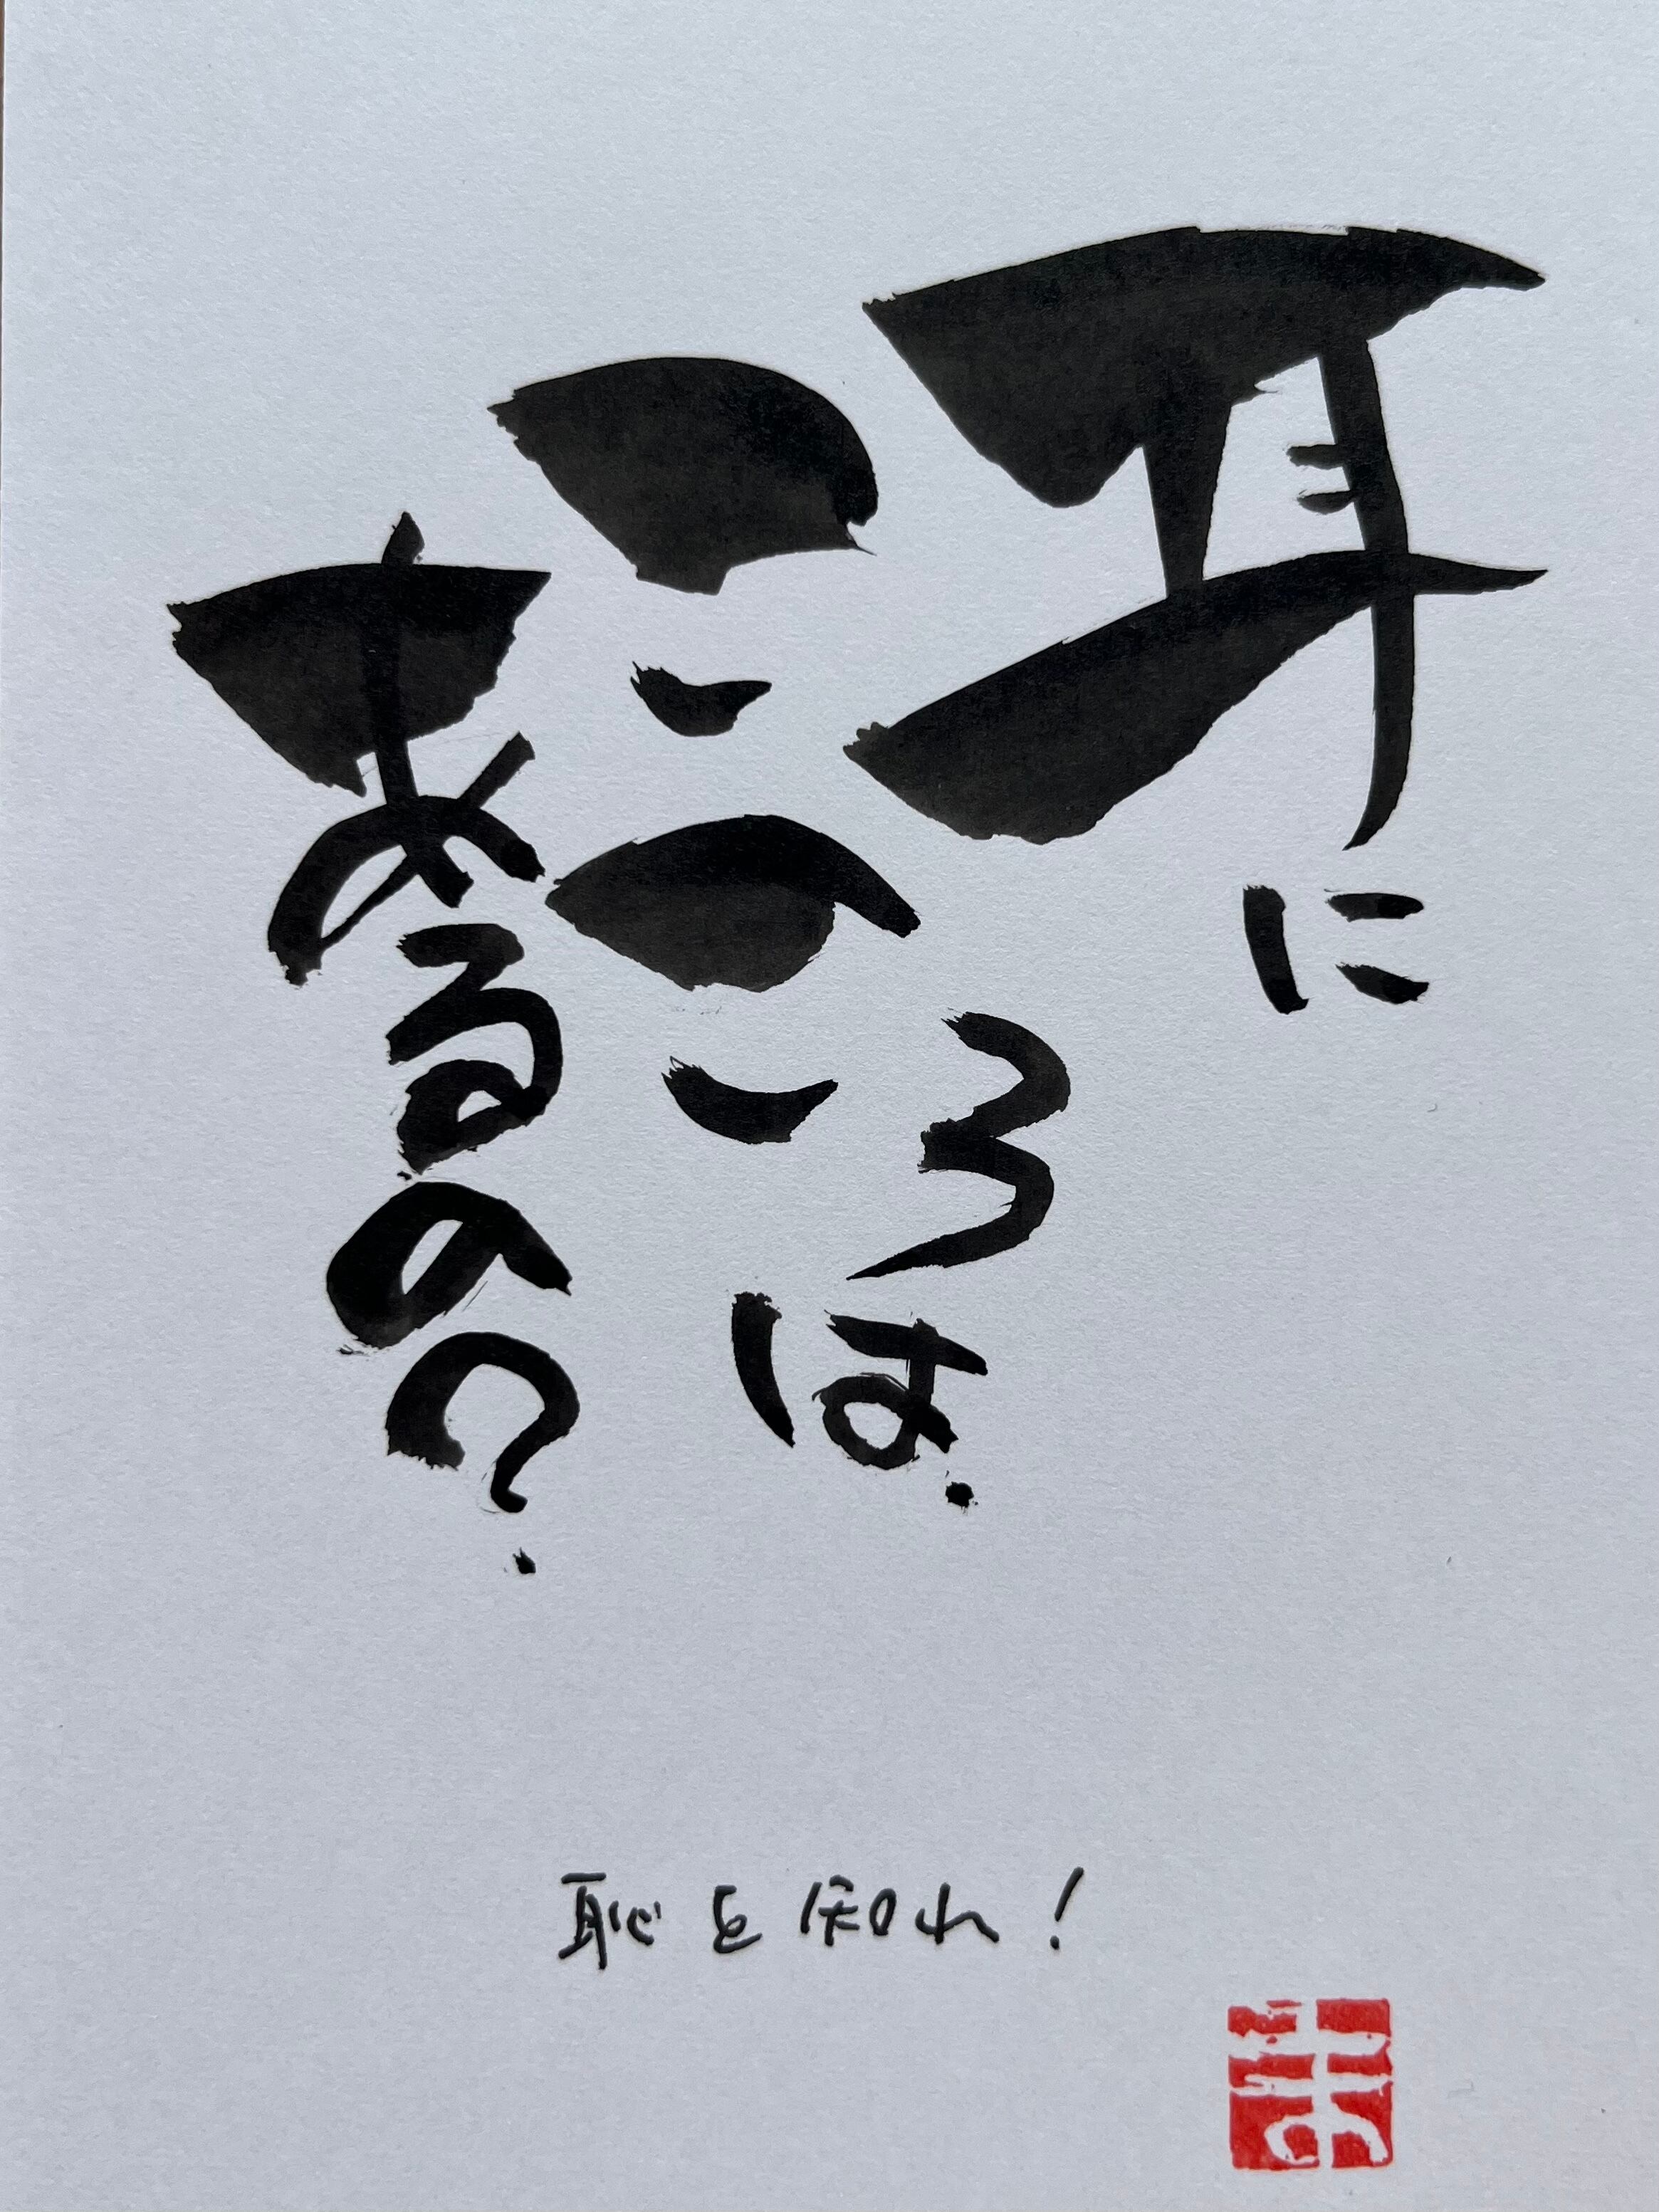 耳に
こころは.
あるの?
恥を知れ!